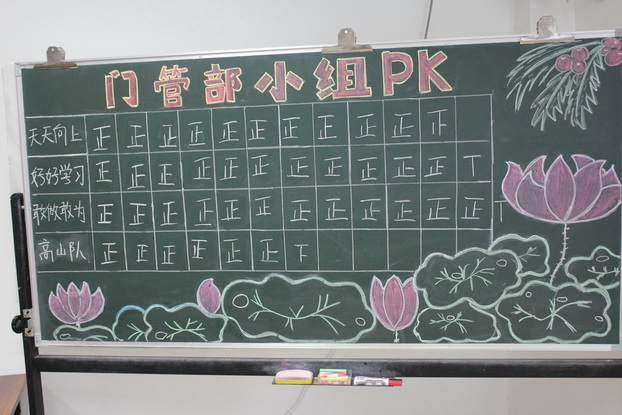 门管部小组PK
天天向上 正 正 正 正 正 正 正 正 正 正
好好学习 正 正 正 正 正 正 正 正 正 正 正 丅
敢做敢为 正 正 正 正 正 正 正 正 正 正 正 正 丅
高山队 正 正 正 正 正 正 下